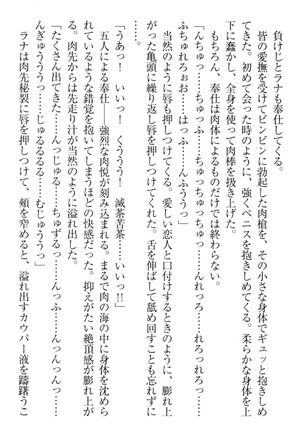 負けじとラナも奉仕してくる。
皆の愛撫を受けてビンビンに勃起した肉槍を、その小さな身体でギュッと抱きしめ
てきた。初めて会った時のように、強くペニスを抱きしめてくる。柔らかな身体を上
下に蠢かし、全身を使って肉棒を扱き上げた。
もちろん、奉仕は肉体によるものだけでは終わらない。
「んちゅっ……ちゅっちゅっ……ちゅっちゅっちゅっ……んれっろ……れろっれろっ……
ふちゅれろぉお……はっふ……んふううっ」
当然のように唇も押しつけてくる。愛しい恋人と口付けするときのように、膨れ上
がった亀頭に繰り返し唇を押しつけてきた。舌を伸ばして舐め回すことも忘れずに。
「うあっ! いいっ! くううう! 滅茶苦茶……いいっ!!」
五人による奉仕――強烈な肉悦が刻み込まれる。まるで肉の海の中に身体を沈めら
れているような錯覚を抱いてしまうほどの快感だった。抑えがたい絶頂感が膨れ上が
る。肉先からは先走り汁が当然のように溢れ出した。
「たくさん出てきた……んっじゅる……ちゅずるっ……んっふ……んっんっんっ……
んぎゅうううっ……じゅるるるる……むじゅううっ」
ラナは肉先秘裂に唇を押しつけて、頬を窄めると、溢れ出すカウパー液を躊躇うこ